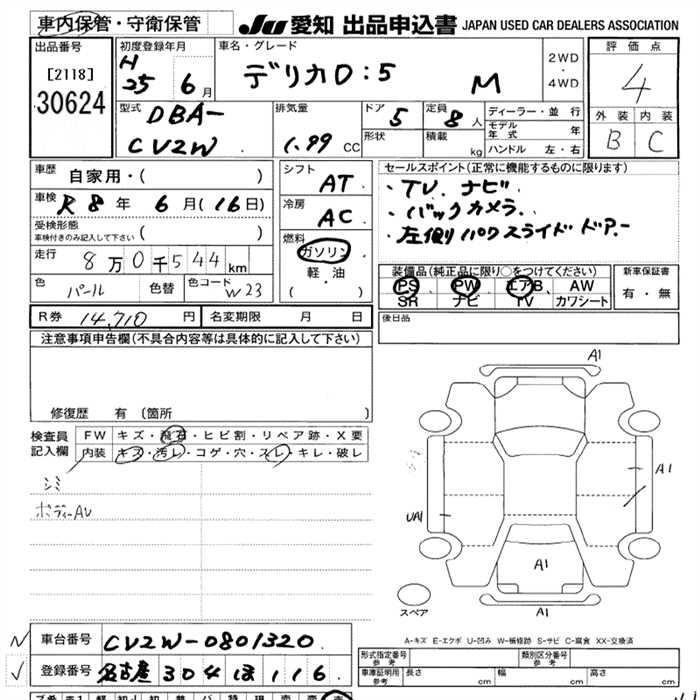 車内保管・守衛保管
JU 愛知 出品申込書 JAPAN USED CAR DEALERS ASSOCIATION
出品番号
[2118]
30624
初度登録年月
H
25 6月
車名・グレード
デリカD:5 M
2WD
・
4WD
評価点
4
外装 内装
B C
型式
DBA-
CV2W
排気量
1.99 CC
ドア
5
定員
8人
形状
積載
kg
ディーラー・並行
モデル年式 年
ハンドル 左・右
車歴 自家用・( )
車検 R 8年 6月(16日)
受検形態
車検付きのみ記入して下さい ( )
走行 8万0千544km
色 パール 色替 色コード W23
シフト
AT
冷房
AC
燃料
ガソリン
軽・油
( ・ )
セールスポイント(正常に機能するものに限ります)
・TV. ナビ.
・バックカメラ.
・左側パワスライドドアー
装備品(純正品に限り○をつけてください)
PS PW エアB AW
SR ナビ TV カワシート
新車保証書
有・無
R券 14,710円 名変期限 月 日
後日品
注意事項申告欄(不具合内容等は具体的に記入して下さい)
修復歴 有 (箇所
検査員
記入欄
FW キズ・飛石・ヒビ割・リペア跡・X要
内装 キズ・汚レ・コゲ・穴・スレ・キレ・破レ
シミ
ボディーAU
A1
A1
UA1
A1
A1
スペア
A-キズ E-エクボ U-凹み W-補修跡 S-サビ C-腐食 XX-交換済
車台番号 CV2W-0801320
登録番号 名古屋 304 ほ 116
形式指定番号
参考
類別区分番号
参考
車庫証明用
参考
長さ cm 幅 cm 高さ cm